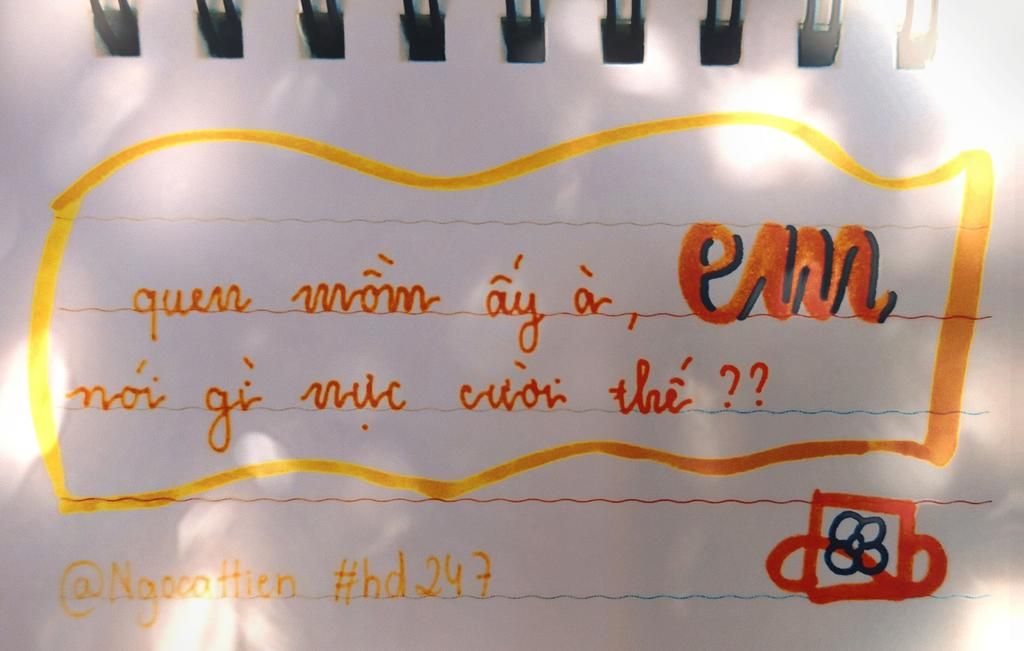 quen mồm ấy à, em
nói gì nực cười thế ??
@Ngocattien #hd247